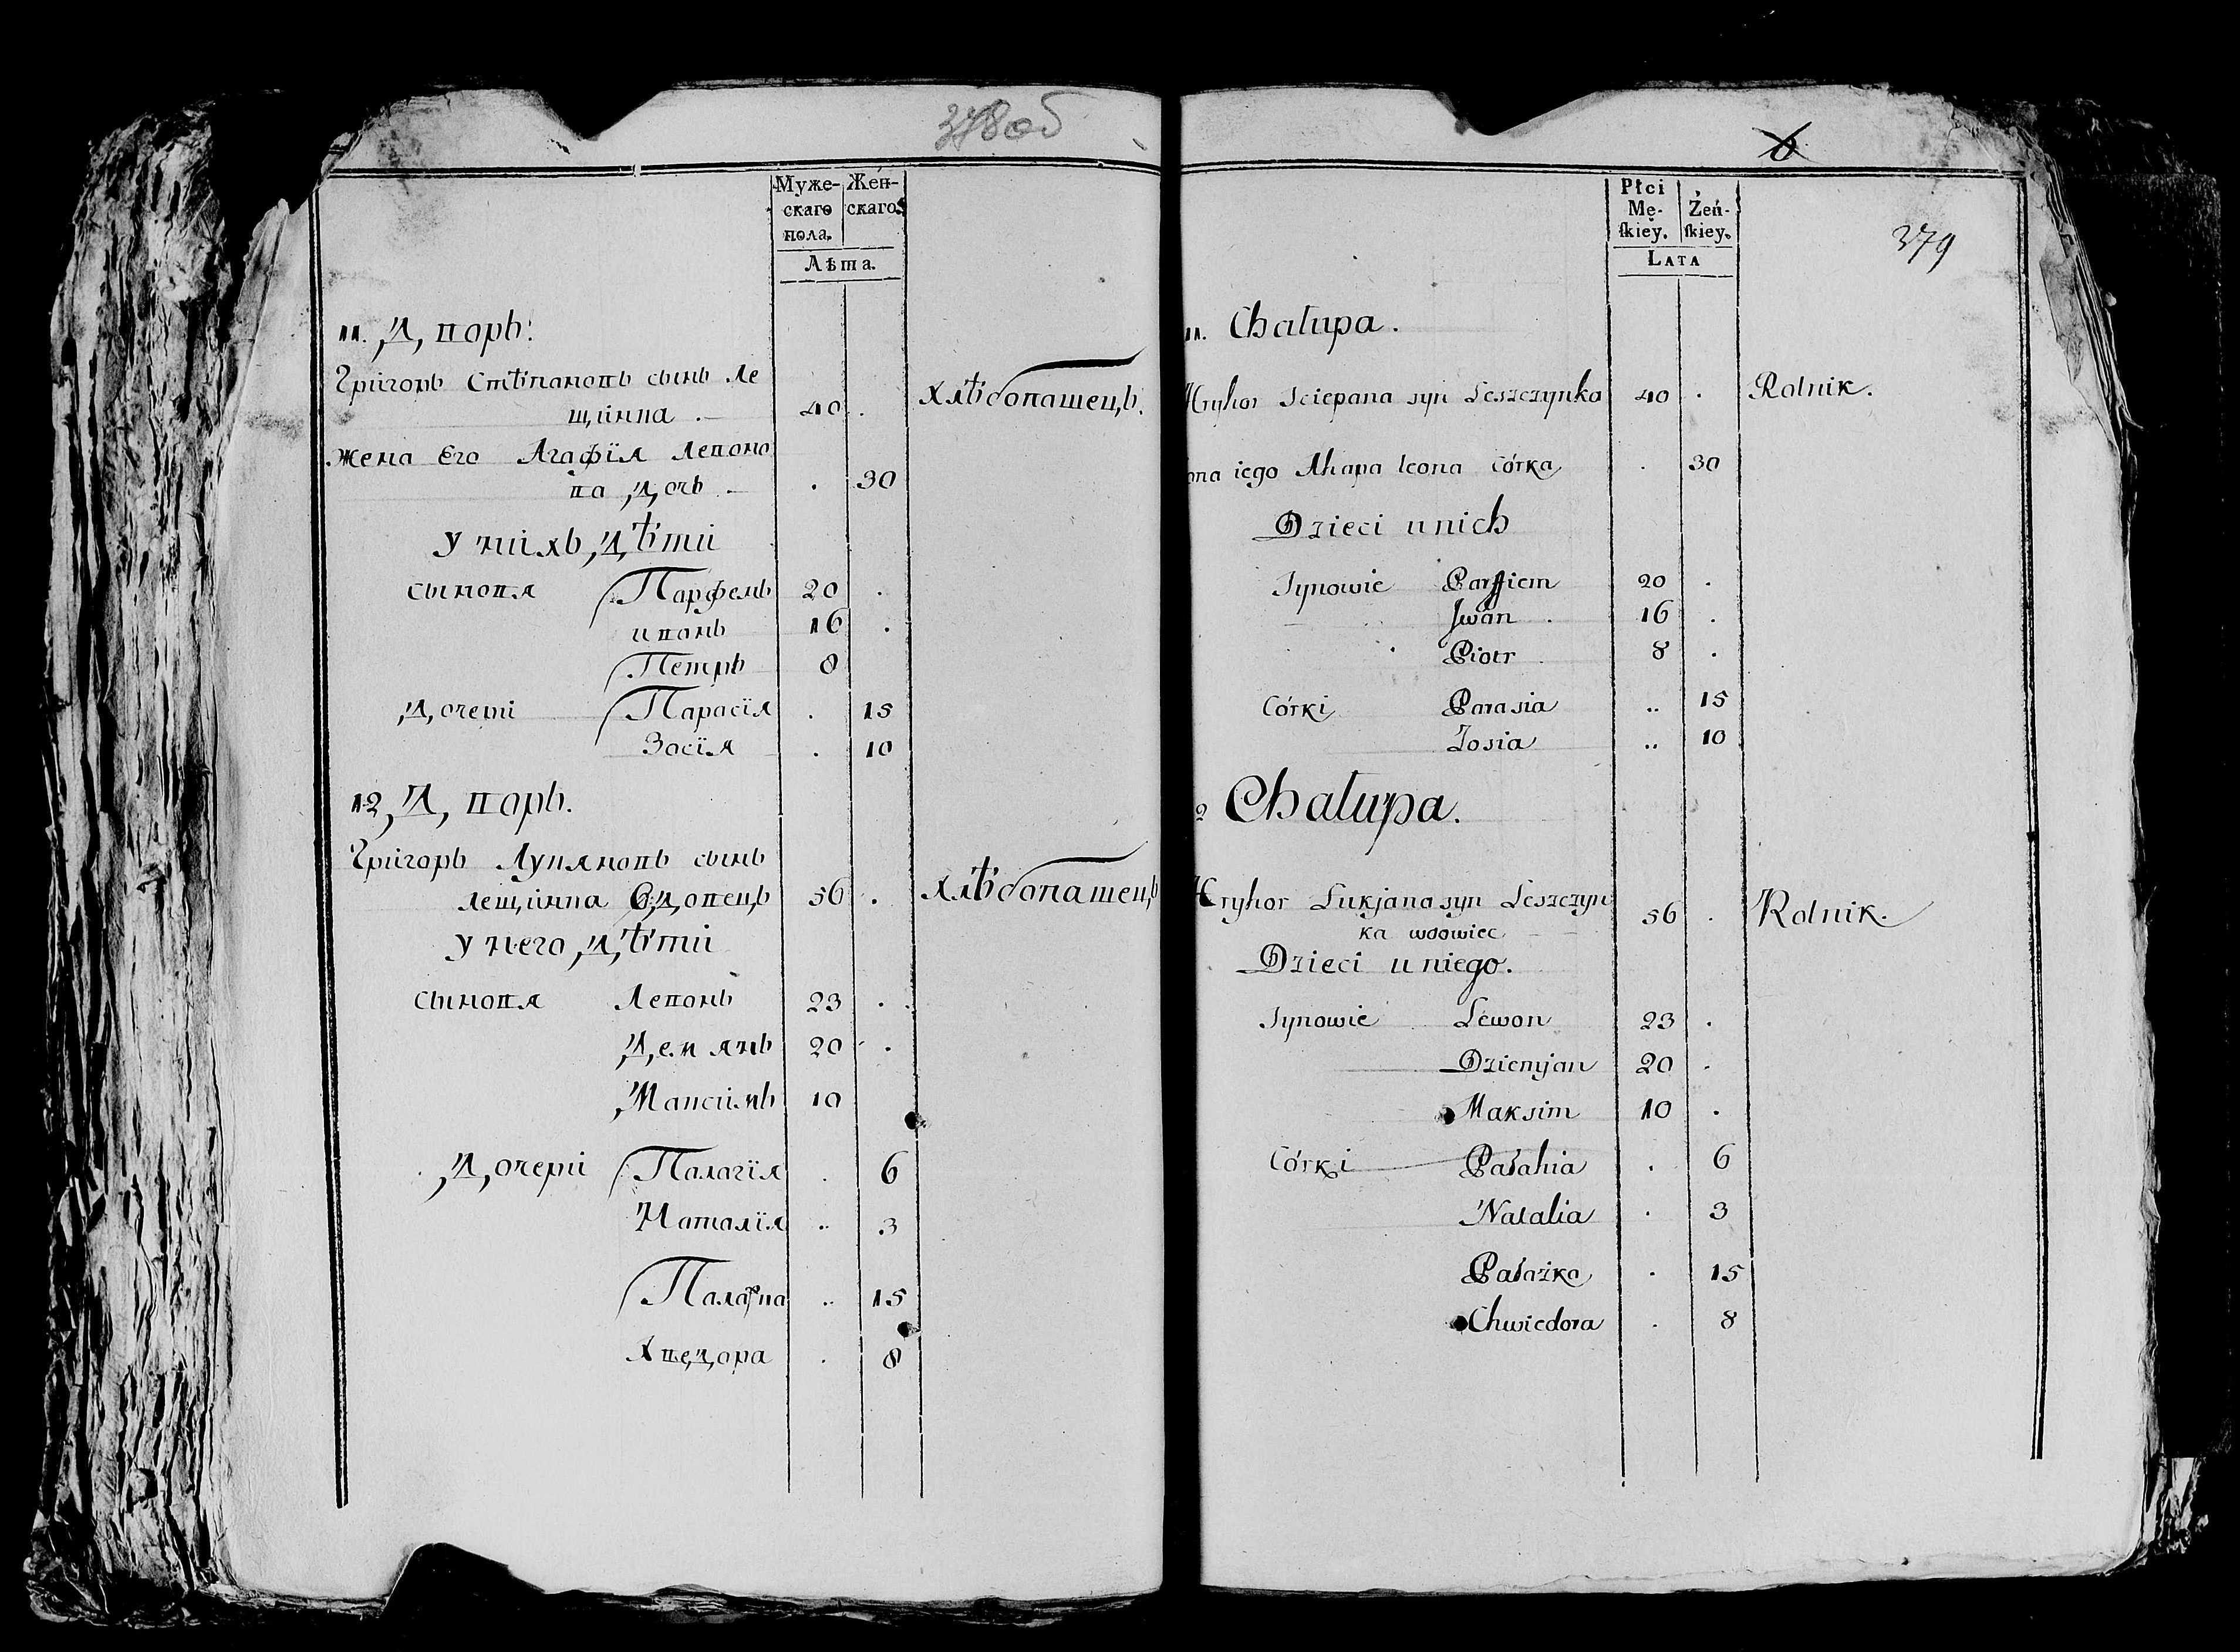 378 об
Муже-
скаго
пола.
Жен-
скаго.
Лѣта.
11. Дворъ:
Григоръ Стѣпановъ сынъ Ле
щинка 40 . Хлѣбопашецъ.
Жена Его Агафїя Левоно
ва дочь . 30
У нихъ дѣти
сыновя Парфенъ 20 .
иванъ 16 .
Петръ 8
дочери Парасїя . 15
Зосїя . 10
12 Дворъ.
Григоръ Лукяновъ сынъ
лещинка вдовецъ 56 . Хлѣбопашецъ
У него дѣти
сыновя Левонъ 23 .
Демянъ 20 .
Максимъ 10
дочери Палагїя . 6
Наталїя .. 3
Палажка .. 15
Хведора . 8
6
379
Płci
Mę-
skiey.
Żeń-
skiey.
LATA
11. Chałupa.
Hryhor Sciepana syn Leszczynka 40 . Rolnik.
ona iego Ahapa Leona córka . 30
Dzieci u nich
Synowie Parfiem 20 .
Jwan 16 .
Piotr 8 .
Córki Parasia .. 15
Zosia .. 10
2 Chałupa.
Hryhor Lukjana syn Leszczyn
ka wdowiec 56 . Rolnik.
Dzieci u niego.
Synowie Lewon 23 .
Dziemjan 20 .
Maksim 10 .
Córki Pałahia . 6
Natalia . 3
Pałażka . 15
Chwiedora . 8